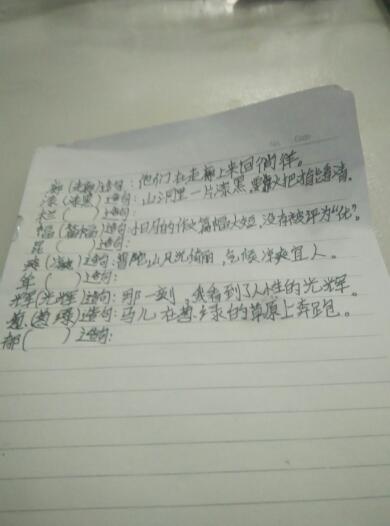 廊(走廊)造句:他们在走廊上来回徜徉。
漆(漆黑)造句:山洞里一片漆黑,需火把才能看清。
( )造句:
幅(篇幅)造句:小月的作文篇幅太短,没有被评为“优”。
昆( )造句:
爽(凉爽)造句:普陀山风光秀丽,气候凉爽宜人。
年( )造句:
辉(光辉)造句:那一刻,我看到了人性的光辉。
葱(葱绿)造句:马儿在葱绿的草原上奔跑。
郁( )造句: